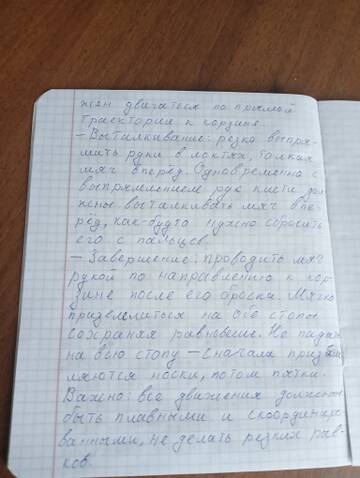 жен двигаться по прямой
траектории к корзине.
– Выталкивание: резко выпря-
мить руки в локтях, толкая
мяч вперёд. Одновременно с
выпрямлением рук кисти дол
жны выталкивать мяч впе-
рёд, как-будто нужно сбросить
его с пальцев.
– Завершение: проводить мяч
рукой по направлению к кор-
зине после его броска. Мягко
приземлиться на обе стопы
сохраняя равновесие. Не падать
на всю стопу – сначала призем
ляются носки, потом пятки.
Важно: все движения должны
быть плавными и скоординиро-
ванными, не делать резких рыв-
ков.